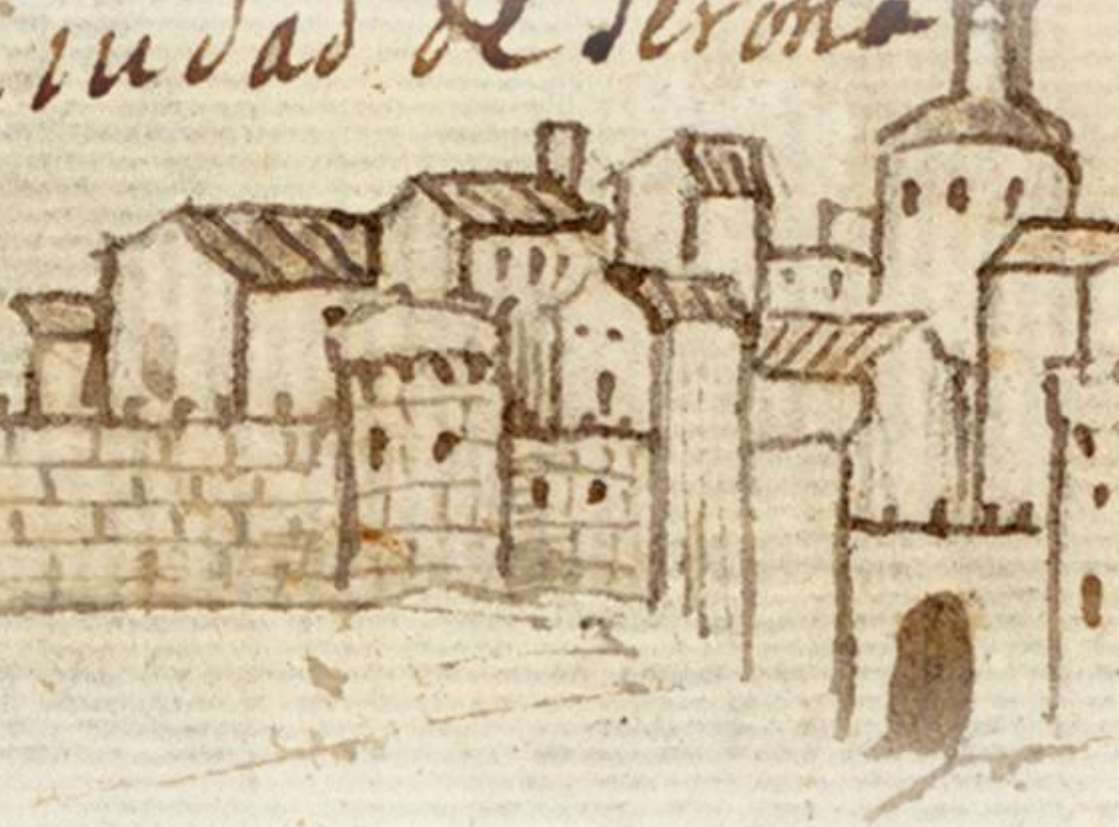 Ciudad de Jerona